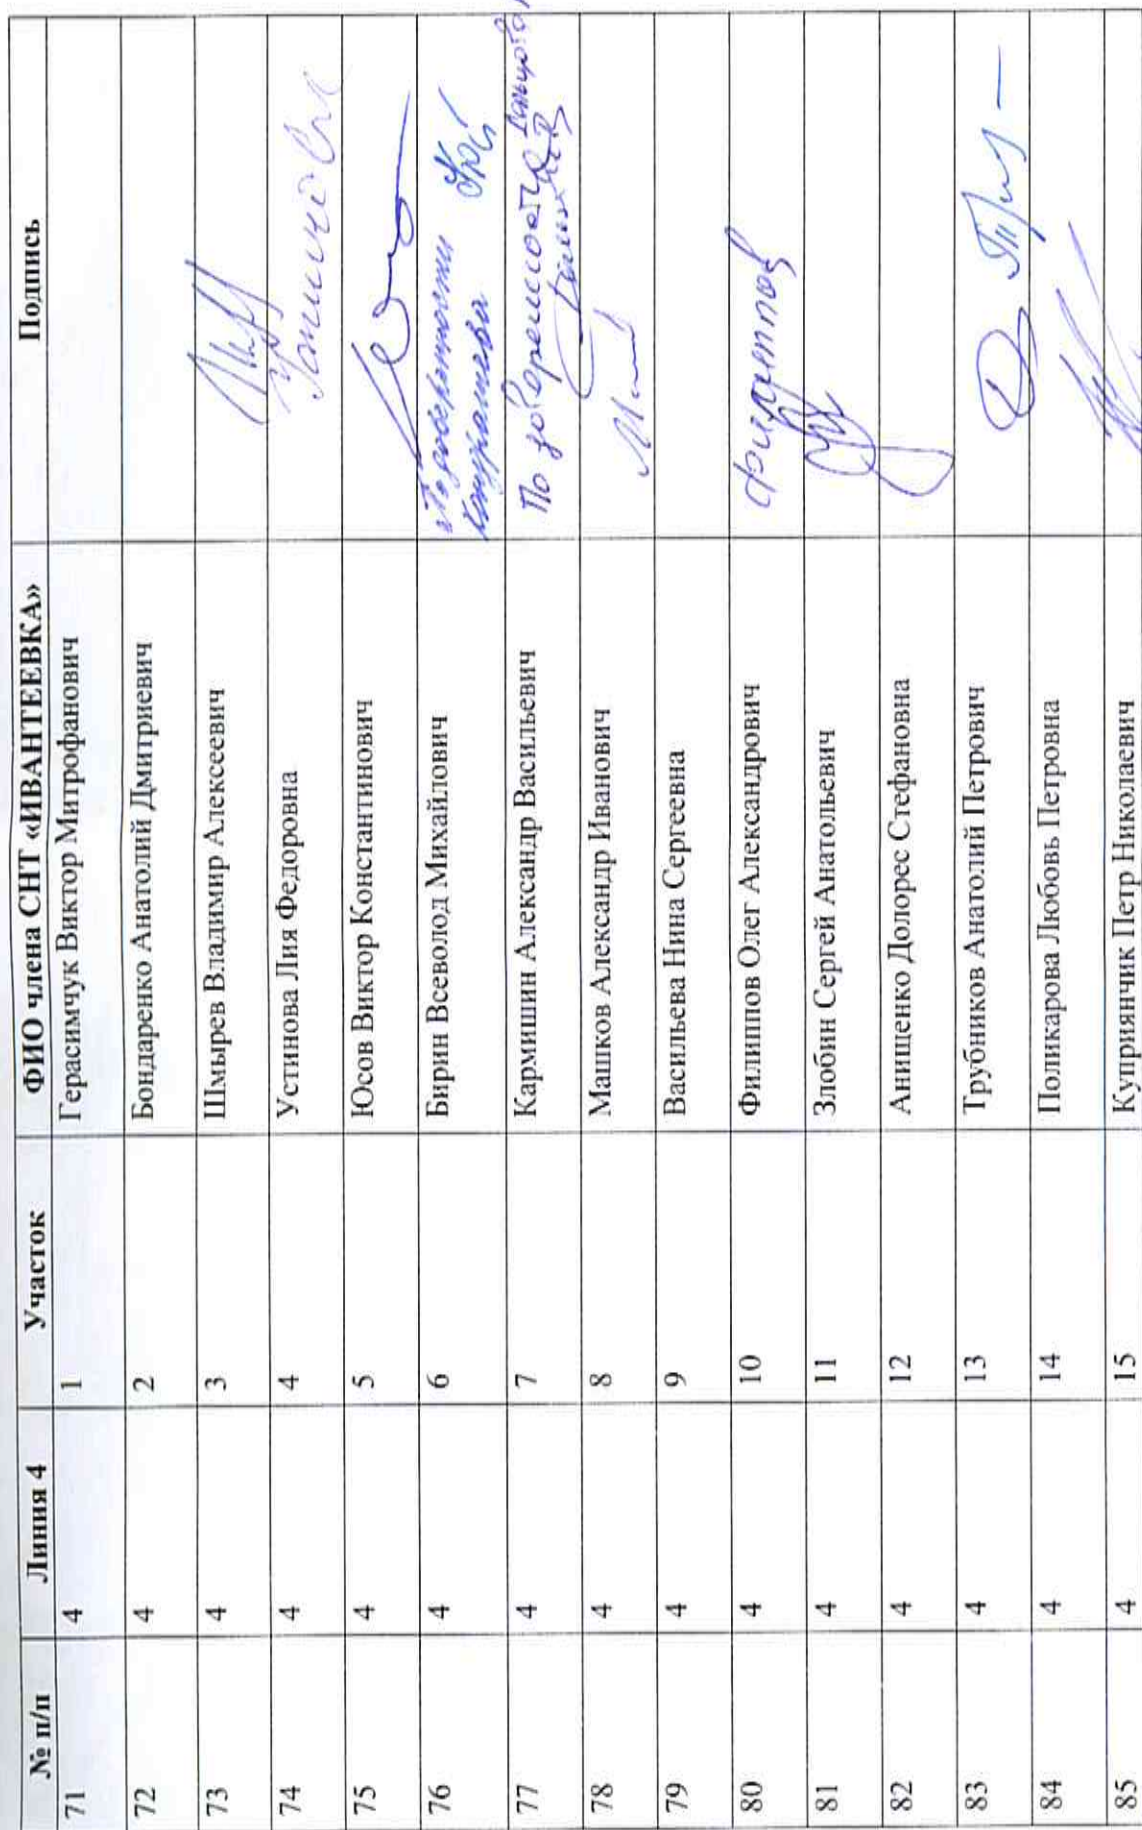 № п/п Линия 4 Участок ФИО члена СНТ «ИВАНТЕЕВКА» Подпись
71 4 1 Герасимчук Виктор Митрофанович
72 4 2 Бондаренко Анатолий Дмитриевич
73 4 3 Шмырев Владимир Алексеевич
74 4 4 Устинова Лия Федоровна
75 4 5 Юсов Виктор Константинович
76 4 6 Бирин Всеволод Михайлович По доверенности
77 4 7 Кармишин Александр Васильевич По доверенности
78 4 8 Машков Александр Иванович
79 4 9 Васильева Нина Сергеевна
80 4 10 Филиппов Олег Александрович Филиппов
81 4 11 Злобин Сергей Анатольевич
82 4 12 Анищенко Долорес Стефановна
83 4 13 Трубников Анатолий Петрович
84 4 14 Поликарова Любовь Петровна
85 4 15 Куприянчик Петр Николаевич